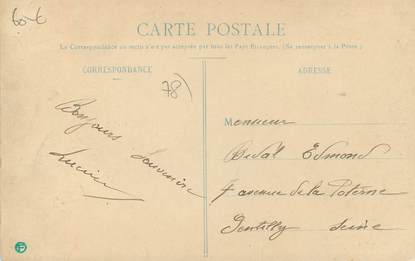 60-€
CARTE POSTALE
La Correspondance au recto n'est pas acceptée par tous les Pays Étrangers. (Se renseigner à la Poste.)
CORRESPONDANCE
78
Bonjours Souvenire
Lucien
ADRESSE
Monsieur
Bidal Edmond
7 avenue de la Poterne
Gentilly Seine